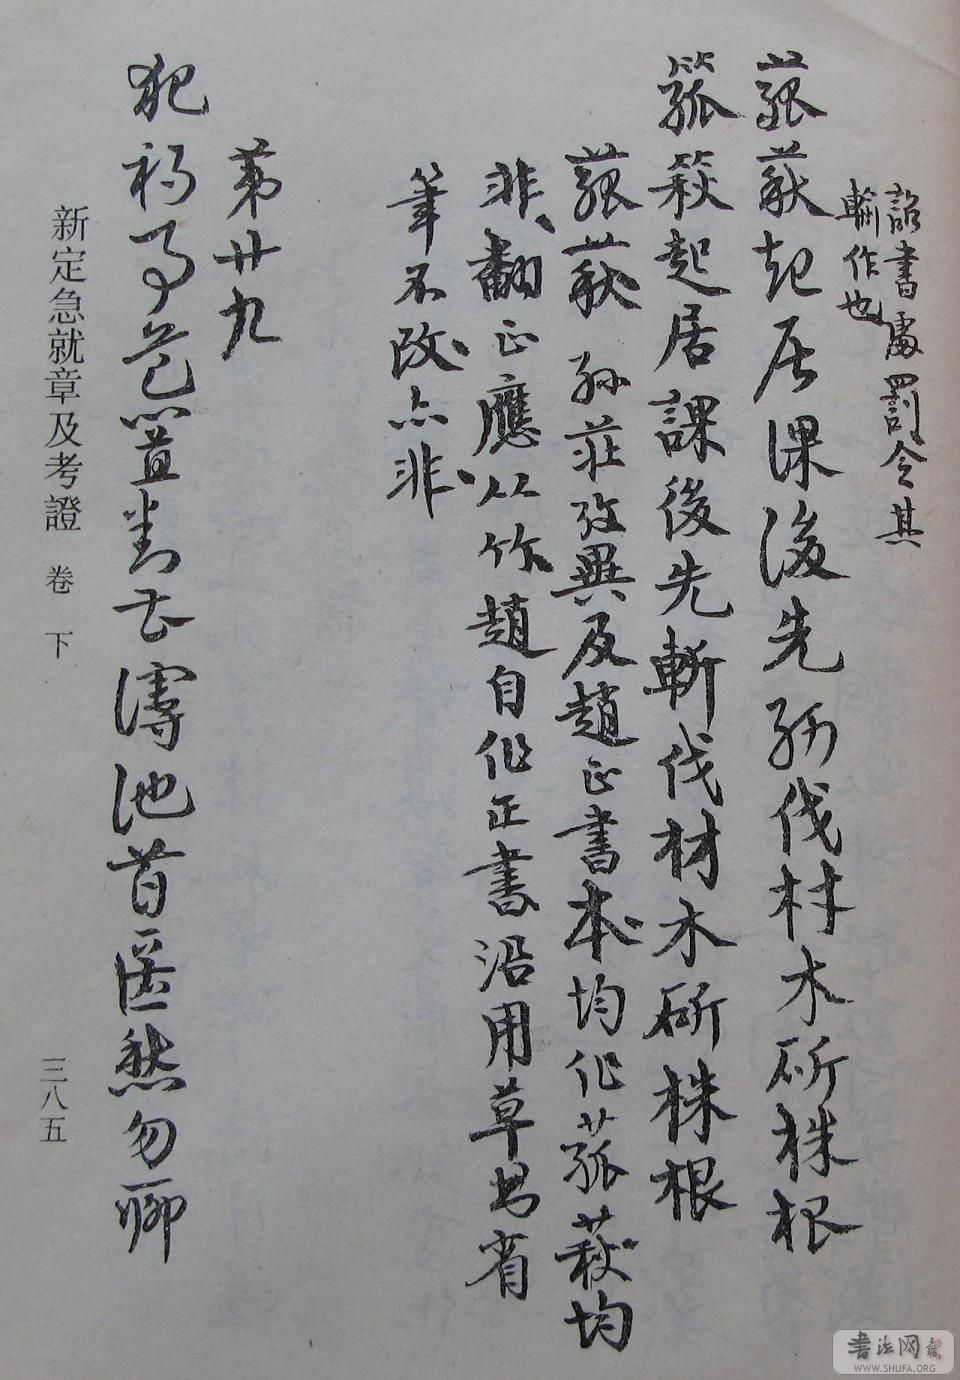 詔書處罰令其
輸作也
菰荻起居課後先斬伐材木斫株根
箛篍起居課後先斬伐材木斫株根
菰荻 孫莊考異及趙正書本均作菰萩均
非、翻正應从竹、趙自作正書沿用草書省
筆不改亦非、
第廿九
犯禍事危置對曹溥池首匿愁勿聊
新定急就章及考證 卷 下
三八五
書法网
WWW.SHUFA.ORG